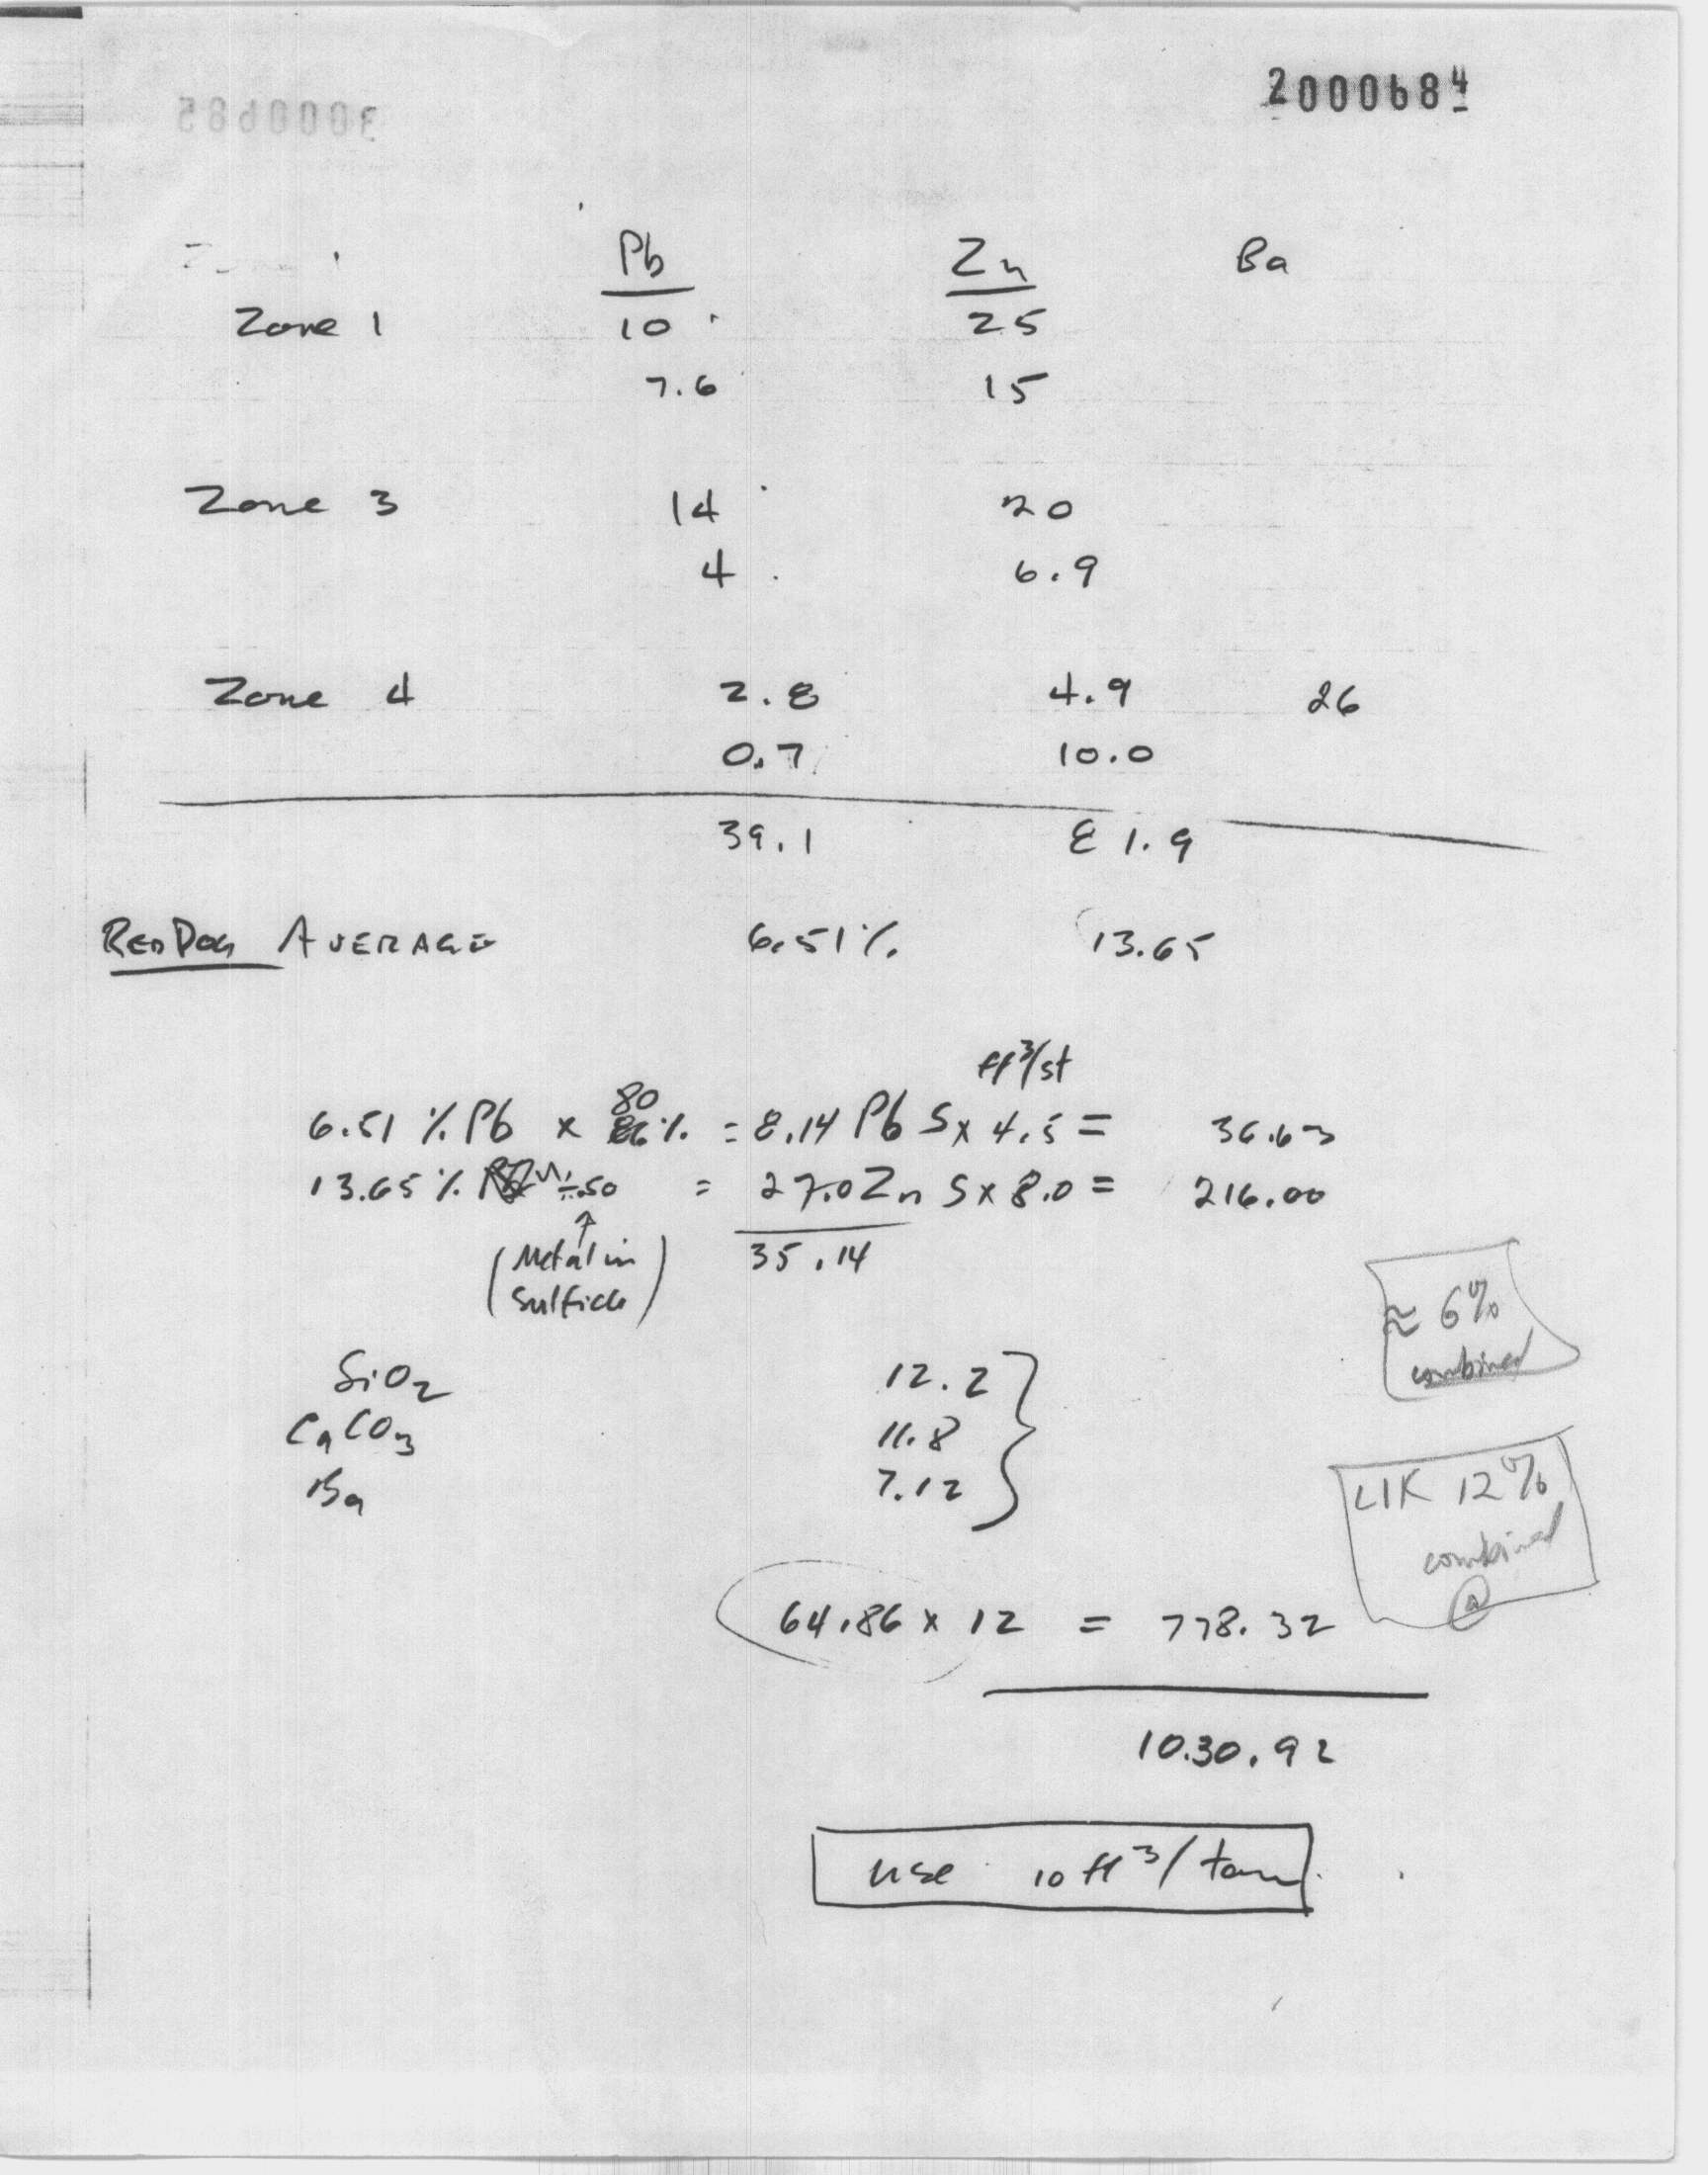 2000684
Pb Zn Ba
Zone 1 10 25
7.6 15
Zone 3 14 20
4 6.9
Zone 4 2.8 4.9 26
0.7 10.0
39.1 81.9
RED DOG AVERAGE 6.51% 13.65
ft³/st
80
6.51 % Pb x % = 8.14 PbS x 4.5 = 36.63
13.65 % Zn ÷ .50 = 27.0 ZnS x 8.0 = 216.00
↑
(Metal in 35.14
sulfide)
≈ 6%
combined
SiO₂ 12.2
CaCO₃ 11.8
Ba 7.12
LIK 12%
combined
@
64.86 x 12 = 778.32
1030.92
use 10 ft³/ton